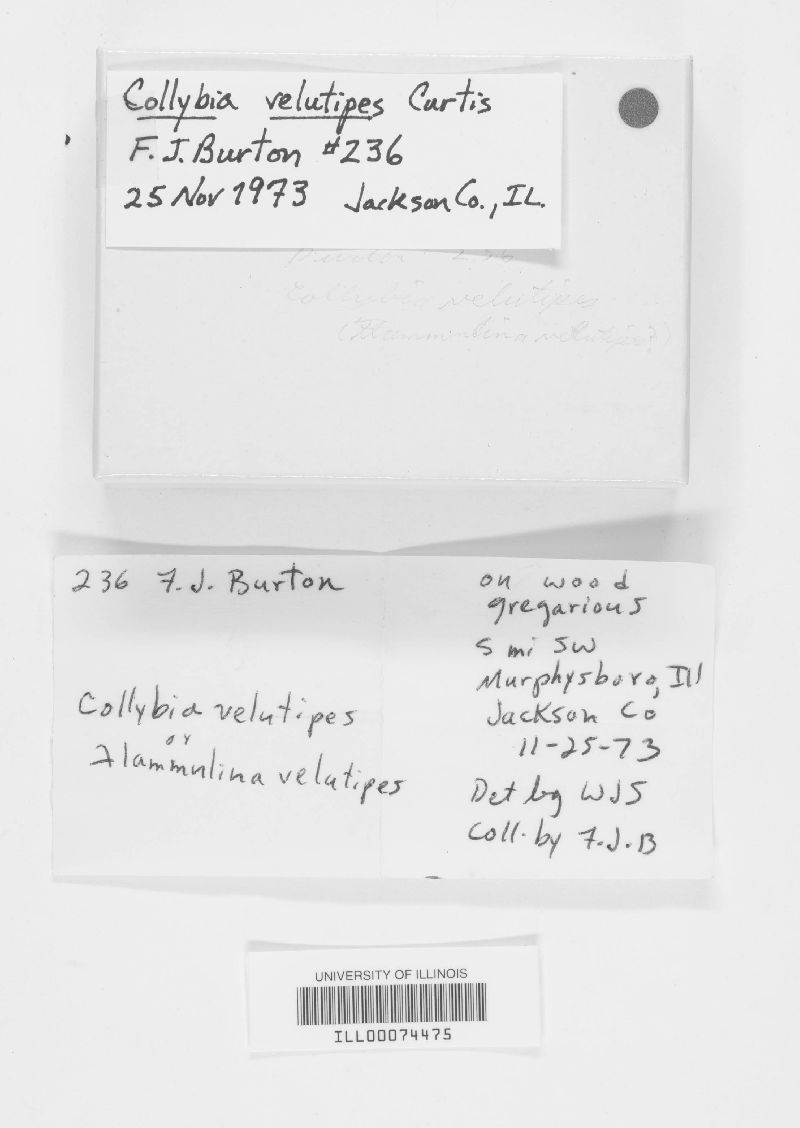 Collybia velutipes Curtis
F. J. Burton #236
25 Nov 1973 Jackson Co., IL.
236
Collybia velutipes
(Flammulina velutipes?)
236 F. J. Burton
Collybia velutipes
or
Flammulina velutipes
on wood
gregarious
5 mi SW
Murphysboro, Ill
Jackson Co
11-25-73
Det by WJS
Coll. by F. J. B
UNIVERSITY OF ILLINOIS
ILL00074475